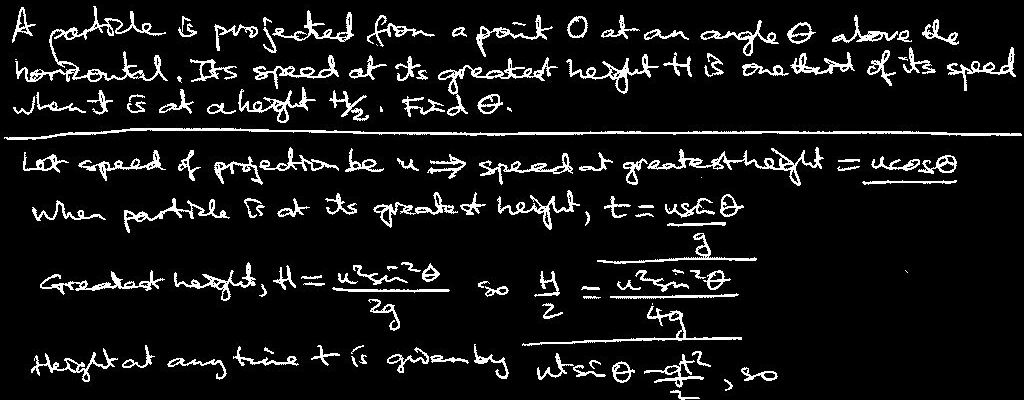 A particle is projected from a point O at an angle θ above the
horizontal. Its speed at its greatest height H is one third of its speed
when it is at a height H/2. Find θ.
Let speed of projection be u ⇒ speed at greatest height = ucosθ
When particle is at its greatest height, t = usinθ/g
Greatest height, H = u²sin²θ/2g so H/2 = u²sin²θ/4g
Height at any time t is given by utsinθ - gt²/2, so